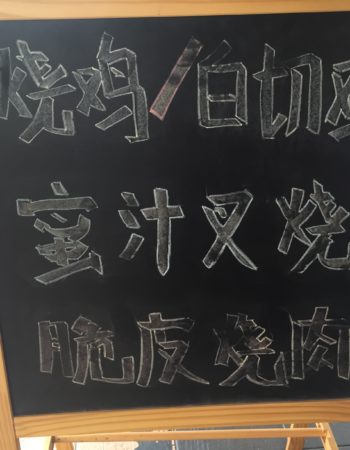 烧鸡/白切鸡
蜜汁叉烧
脆皮烧肉